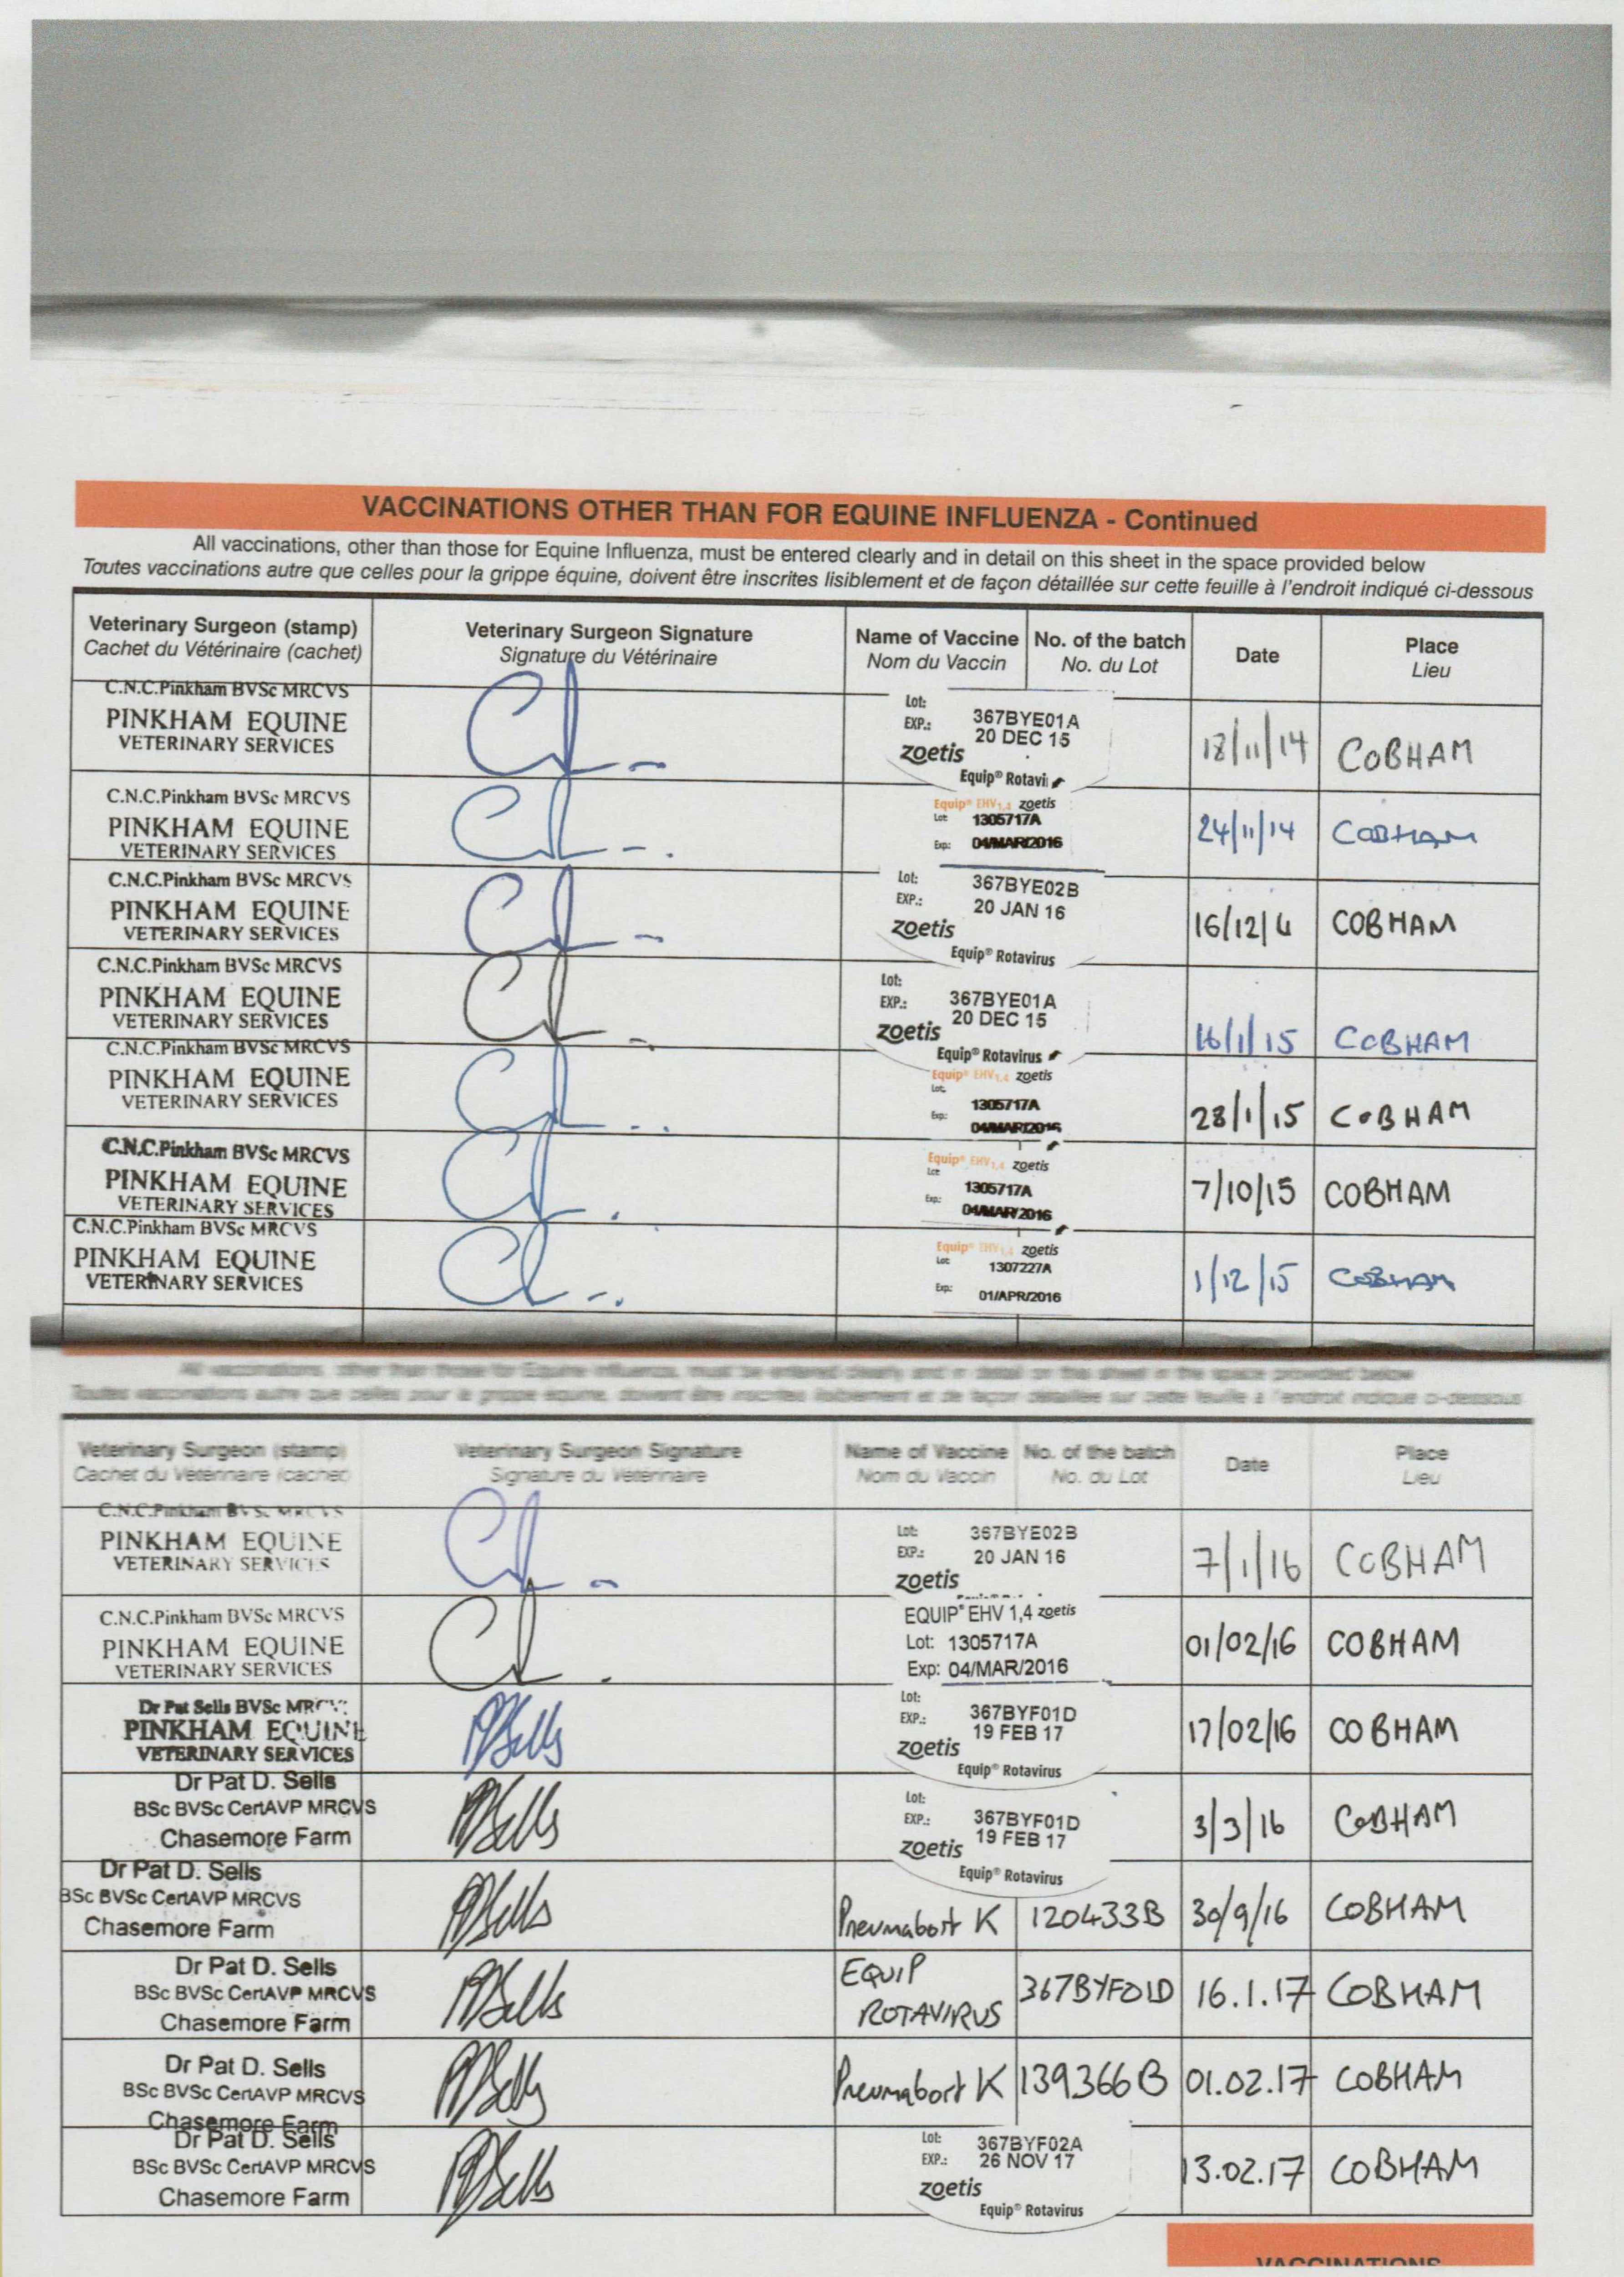 VACCINATIONS OTHER THAN FOR EQUINE INFLUENZA - Continued
All vaccinations, other than those for Equine Influenza, must be entered clearly and in detail on this sheet in the space provided below
Toutes vaccinations autre que celles pour la grippe équine, doivent être inscrites lisiblement et de façon détaillée sur cette feuille à l'endroit indiqué ci-dessous
Veterinary Surgeon (stamp) Veterinary Surgeon Signature Name of Vaccine No. of the batch Date Place
Cachet du Vétérinaire (cachet) Signature du Vétérinaire Nom du Vaccin No. du Lot Lieu
C.N.C.Pinkham BVSc MRCVS
PINKHAM EQUINE
VETERINARY SERVICES
Lot: 367BYE01A
EXP.: 20 DEC 15
zoetis
Equip® Rotavi
18/11/14 COBHAM
C.N.C.Pinkham BVSc MRCVS
PINKHAM EQUINE
VETERINARY SERVICES
Equip® EHV1,4 zoetis
Lot: 1305717A
Exp: 04/MAR/2016
24/11/14 COBHAM
C.N.C.Pinkham BVSc MRCVS
PINKHAM EQUINE
VETERINARY SERVICES
Lot: 367BYE02B
EXP.: 20 JAN 16
zoetis
Equip® Rotavirus
16/12/4 COBHAM
C.N.C.Pinkham BVSc MRCVS
PINKHAM EQUINE
VETERINARY SERVICES
Lot: 367BYE01A
EXP.: 20 DEC 15
zoetis
Equip® Rotavirus
16/1/15 COBHAM
C.N.C.Pinkham BVSc MRCVS
PINKHAM EQUINE
VETERINARY SERVICES
Equip® EHV1,4 zoetis
Lot: 1305717A
Exp: 04/MAR/2016
28/1/15 COBHAM
C.N.C.Pinkham BVSc MRCVS
PINKHAM EQUINE
VETERINARY SERVICES
Equip® EHV1,4 zoetis
Lot: 1305717A
Exp: 04/MAR/2016
7/10/15 COBHAM
C.N.C.Pinkham BVSc MRCVS
PINKHAM EQUINE
VETERINARY SERVICES
Equip® EHV1,4 zoetis
Lot: 1307227A
Exp: 01/APR/2016
1/12/15 COBHAM
All vaccinations, other than those for Equine Influenza, must be entered clearly and in detail on this sheet in the space provided below
Toutes vaccinations autre que celles pour la grippe équine, doivent être inscrites lisiblement et de façon détaillée sur cette feuille à l'endroit indiqué ci-dessous
Veterinary Surgeon (stamp) Veterinary Surgeon Signature Name of Vaccine No. of the batch Date Place
Cachet du Vétérinaire (cachet) Signature du Vétérinaire Nom du Vaccin No. du Lot Lieu
C.N.C.Pinkham BVSc MRCVS
PINKHAM EQUINE
VETERINARY SERVICES
Lot: 367BYE02B
EXP.: 20 JAN 16
zoetis
7/1/16 COBHAM
C.N.C.Pinkham BVSc MRCVS
PINKHAM EQUINE
VETERINARY SERVICES
EQUIP® EHV 1,4 zoetis
Lot: 1305717A
Exp: 04/MAR/2016
01/02/16 COBHAM
Dr Pat Sells BVSc MRCV
PINKHAM EQUINE
VETERINARY SERVICES
PDSells
Lot: 367BYF01D
EXP.: 19 FEB 17
zoetis
Equip® Rotavirus
17/02/16 COBHAM
Dr Pat D. Sells
BSc BVSc CertAVP MRCVS
Chasemore Farm
PDSells
Lot: 367BYF01D
EXP.: 19 FEB 17
zoetis
Equip® Rotavirus
3/3/16 COBHAM
Dr Pat D. Sells
BSc BVSc CertAVP MRCVS
Chasemore Farm
PDSells
Pneumabort K 120433B 30/9/16 COBHAM
Dr Pat D. Sells
BSc BVSc CertAVP MRCVS
Chasemore Farm
PDSells
EQUIP
ROTAVIRUS 367BYF01D 16.1.17 COBHAM
Dr Pat D. Sells
BSc BVSc CertAVP MRCVS
Chasemore Farm
PDSells
Pneumabort K 139366B 01.02.17 COBHAM
Dr Pat D. Sells
BSc BVSc CertAVP MRCVS
Chasemore Farm
PDSells
Lot: 367BYF02A
EXP.: 26 NOV 17
zoetis
Equip® Rotavirus
13.02.17 COBHAM
VACCINATIONS